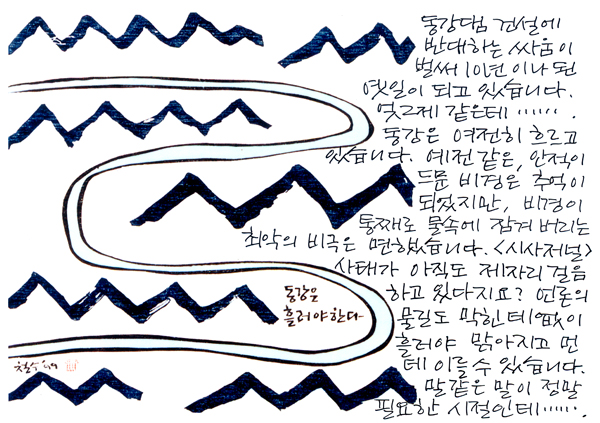 동강댐 건설에
반대하는 싸움이
벌써 10년이나 된
옛일이 되고 있습니다.
엊그제 같은데…….
동강은 여전히 흐르고
있습니다. 예전 같은, 인적이
드문 비경은 추억이
되었지만, 비경이
통째로 물속에 잠겨 버리는
최악의 비극은 면했습니다. <시사저널>
사태가 아직도 제자리 걸음
하고 있다지요? 언론의
물길도 막힌 데 없이
흘러야 맑아지고 먼
데 이를 수 있습니다.
말같은 말이 정말
필요한 시절인데…….
동강은
흘러야 한다
철수 '99